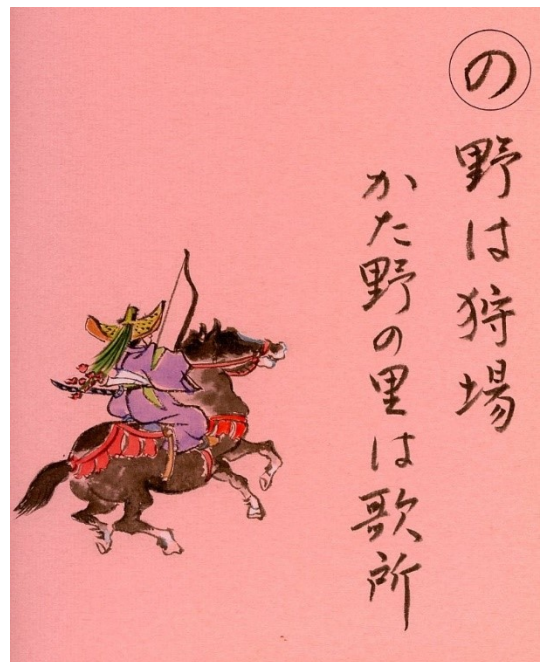 の
野は狩場
かた野の里は歌所